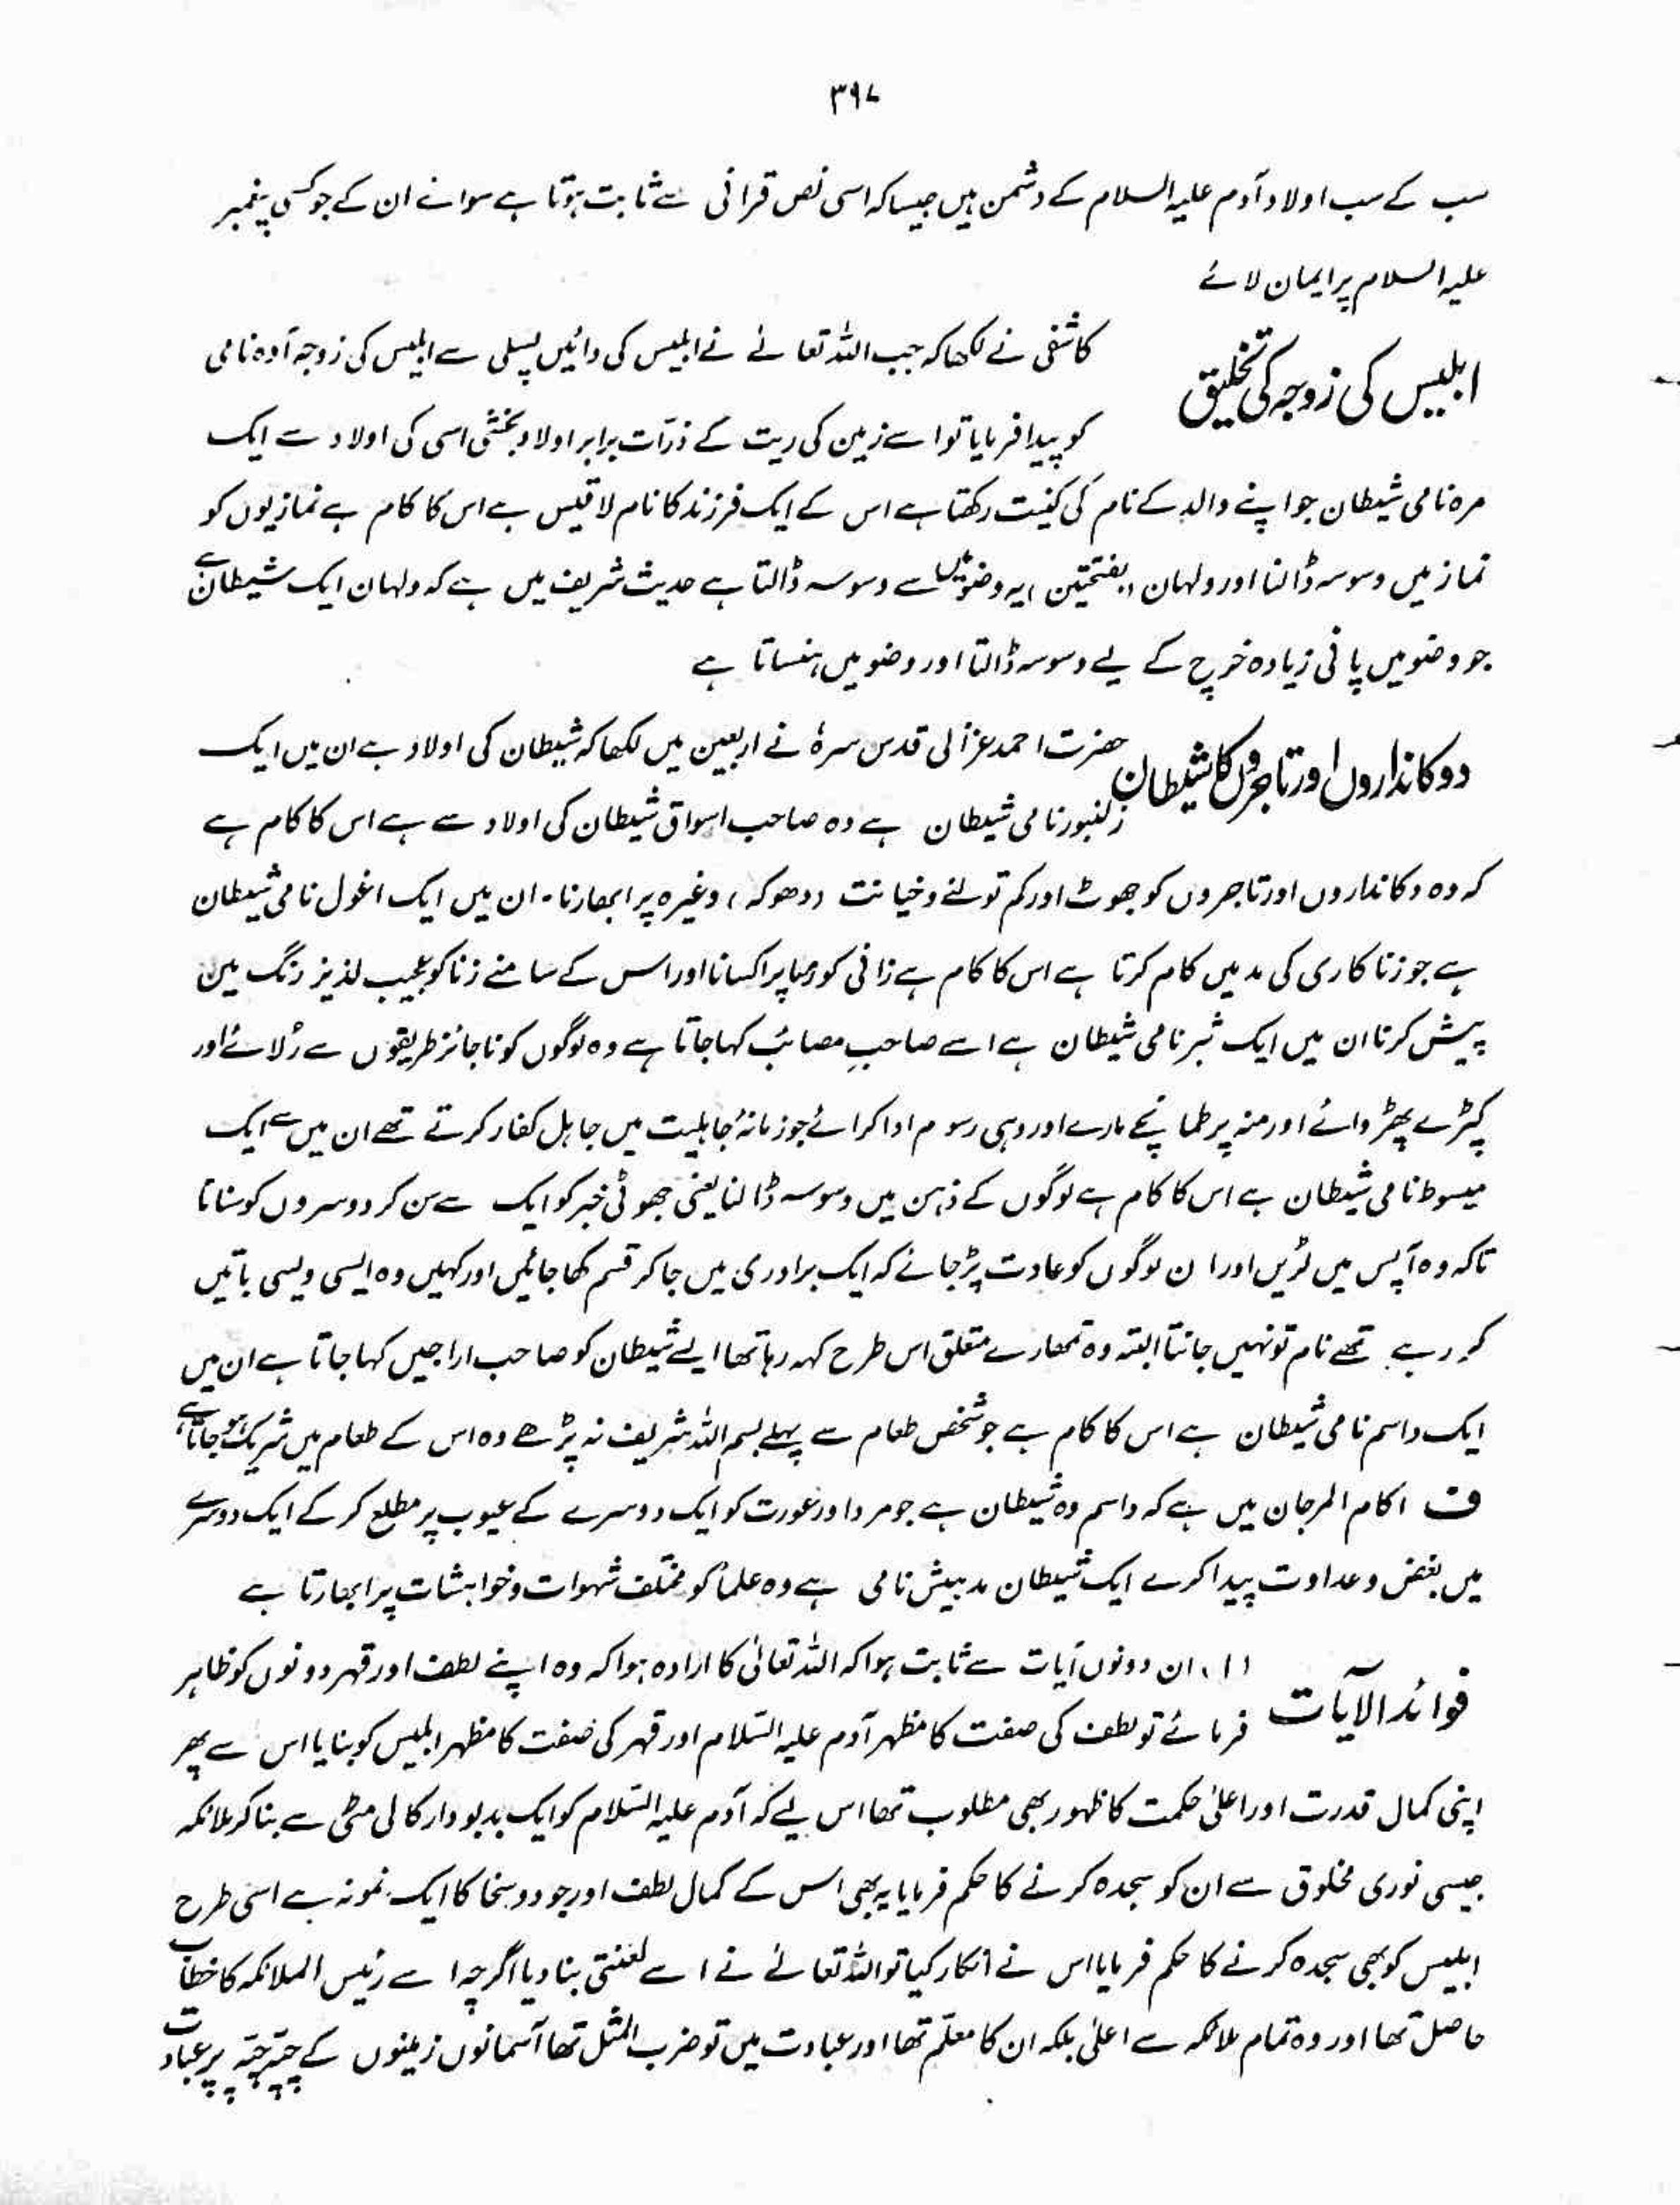 ۳۹۷
سب کے سب اولاد آدم علیہ السلام کے دشمن ہیں جیسا کہ اسی نص قرآنی سے ثابت ہوتا ہے سوائے ان کے جو کسی پیغمبر
علیہ السلام پر ایمان لائے
ابلیس کی زوجہ کی تخلیق
کاشفی نے لکھا کہ جب اللہ تعالےٰ نے ابلیس کی دائیں پسلی سے ابلیس کی زوجہ آوہ نامی
کو پیدا فرمایا تو اسے زمین کی ریت کے ذرّات برابر اولاد بخشی اسی کی اولاد سے ایک
مرہ نامی شیطان جو اپنے والد کے نام کی کنیت رکھتا ہے اس کے ایک فرزند کا نام لاقیس ہے اس کا کام ہے نمازیوں کو
نماز میں وسوسہ ڈالنا اور ولہان (بفتحتین) یہ وضو میں اسے وسوسہ ڈالتا ہے حدیث شریف میں ہے کہ ولہان ایک شیطان ہے
جو وضو میں پانی زیادہ خرچ کے لیے وسوسہ ڈالتا اور وضو میں ہنساتا ہے
دوکانداروں اور تاجروں کا شیطان
حضرت احمد غزالی قدس سرہٗ نے اربعین میں لکھا کہ شیطان کی اولاد ہے ان میں ایک
زلنبور نامی شیطان ہے وہ صاحب اسواق شیطان کی اولاد سے ہے اس کا کام ہے
کہ وہ دکانداروں اور تاجروں کو جھوٹ اور کم تولنے وخیانت (دھوکہ) وغیرہ پر ابھارنا۔ ان میں ایک اغول نامی شیطان
ہے جو زنا کاری کی مد میں کام کرتا ہے اس کا کام ہے زانی کو زنا پر اکسانا اور اس کے سامنے زنا کو عجیب لذیز رنگ میں
پیش کرنا ان میں ایک ثبر نامی شیطان ہے اسے صاحبِ مصائب کہا جاتا ہے وہ لوگوں کو ناجائز طریقوں سے رُلائے اور
کپڑے پھڑوائے اور منہ پر طمانچے مارے اور وہی رسوم ادا کرائے جو زمانۂ جاہلیت میں جاہل کفار کرتے تھے ان میں سے ایک
میسوط نامی شیطان ہے اس کا کام ہے لوگوں کے ذہن میں وسوسہ ڈالنا یعنی جھوٹی خبر کو ایک سے سن کر دوسروں کو سنانا
تاکہ وہ آپس میں لڑیں اور ان لوگوں کو عادت پڑ جانے کہ ایک برادری میں جا کر قسم کھا جائیں اور کہیں وہ ایسی ویسی باتیں
کر رہے تھے نام تو نہیں جانتا البتہ وہ تمھارے متعلق اس طرح کہہ رہا تھا ایسے شیطان کو صاحب اراجیں کہا جاتا ہے ان میں
ایک داسم نامی شیطان ہے اس کا کام ہے جو شخص طعام سے پہلے بسم اللہ شریف نہ پڑھے وہ اس کے طعام میں شریک ہو جاتا ہے
ف اکام المرجان میں ہے کہ داسم وہ شیطان ہے جو مرد اور عورت کو ایک دوسرے کے عیوب پر مطلع کر کے ایک دوسرے
میں بغض وعداوت پیدا کرے ایک شیطان مدہیش نامی ہے وہ علماء کو مختلف شہوات وخواہشات پر ابھارتا ہے
فوائد الآیات
(۱) ان دونوں آیات سے ثابت ہوا کہ اللہ تعالیٰ کا ارادہ ہوا کہ وہ اپنے لطف اور قہر دونوں کو ظاہر
فرمائے تو لطف کی صفت کا مظہر آدم علیہ السّلام اور قہر کی صفت کا مظہر ابلیس کو بنایا اس سے پھر
اپنی کمال قدرت اور اعلیٰ حکمت کا ظہور بھی مطلوب تھا اس لیے کہ آدم علیہ السّلام کو ایک بدبودار کالی مٹی سے بنا کر ملائکہ
جیسی نوری مخلوق سے ان کو سجدہ کرنے کا حکم فرمایا یہ بھی اس کے کمال لطف اور جود وسخا کا ایک نمونہ ہے اسی طرح
ابلیس کو بھی سجدہ کرنے کا حکم فرمایا اس نے انکار کیا تو اللہ تعالےٰ نے اسے لعنتی بنا دیا اگرچہ اسے رئیس الملائکہ کا خطاب
حاصل تھا اور وہ تمام ملائکہ سے اعلیٰ بلکہ ان کا معلّم تھا اور عبادت میں تو ضرب المثل تھا آسمانوں زمینوں کے چپّہ چپّہ پر عبادت